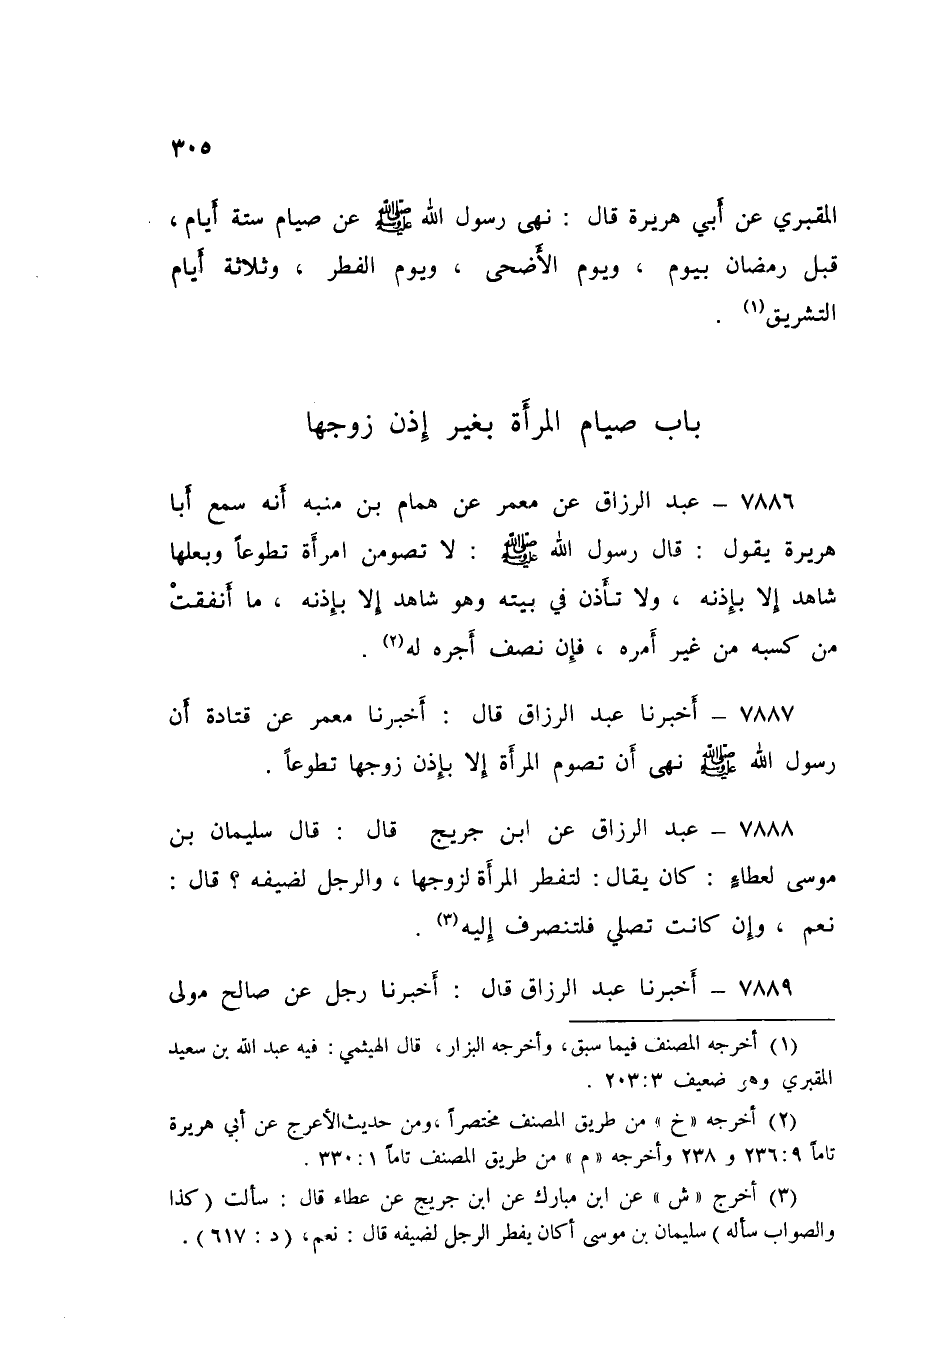 ٣٠٥
المقبري عن أَبي هريرة قال : نهى رسول الله ﷺ عن صيام ستة أَيام ،
قبل رمضان بيوم ، ويوم الأَضحى ، ويوم الفطر ، وثلاثة أَيام
التشريق(١) .
باب صيام المرأَة بغير إِذن زوجها
٧٨٨٦ – عبد الرزاق عن معمر عن همام بن منبه أَنه سمع أَبا
هريرة يقول : قال رسول الله ﷺ : لا تصومن امرأَة تطوعاً وبعلها
شاهد إِلا بإِذنه ، ولا تأَذن في بيته وهو شاهد إِلا بإِذنه ، ما أَنفقتْ
من كسبه من غير أَمره ، فإِن نصف أَجره له(٢) .
٧٨٨٧ – أَخبرنا عبد الرزاق قال : أَخبرنا معمر عن قتادة أَن
رسول الله ﷺ نهى أَن تصوم المرأَة إِلا بإِذن زوجها تطوعاً .
٧٨٨٨ – عبد الرزاق عن ابن جريج قال : قال سليمان بن
موسى لعطاءٍ : كان يقال : لتفطر المرأَة لزوجها ، والرجل لضيفه ؟ قال :
نعم ، وإِن كانت تصلي فلتنصرف إِليه(٣) .
٧٨٨٩ – أَخبرنا عبد الرزاق قال : أَخبرنا رجل عن صالح مولى
(١) أخرجه المصنف فيما سبق، وأخرجه البزار، قال الهيثمي : فيه عبد الله بن سعيد
المقبري وهو ضعيف ٣ : ٢٠٣ .
(٢) أخرجه « خ » من طريق المصنف مختصراً ،ومن حديث الأعرج عن أبي هريرة
تاماً ٩ : ٢٣٦ و ٢٣٨ وأخرجه « م » من طريق المصنف تاماً ١ : ٣٣٠ .
(٣) أخرج « ش » عن ابن مبارك عن ابن جريج عن عطاء قال : سألت ( كذا
والصواب سأله ) سليمان بن موسى أكان يفطر الرجل لضيفه قال : نعم، ( د : ٦١٧ ) .